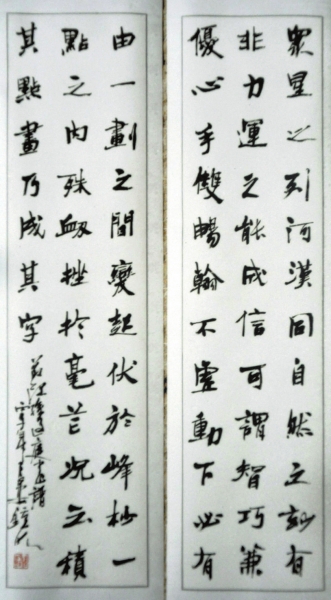 眾星之列河漢同自然之妙有
非力運之能成信可謂智巧兼
優心手雙暢翰不虛動下必有
由一劃之間變起伏於峰杪一
點之內殊衄挫於毫芒況云積
其點畫乃成其字
孫過庭書譜